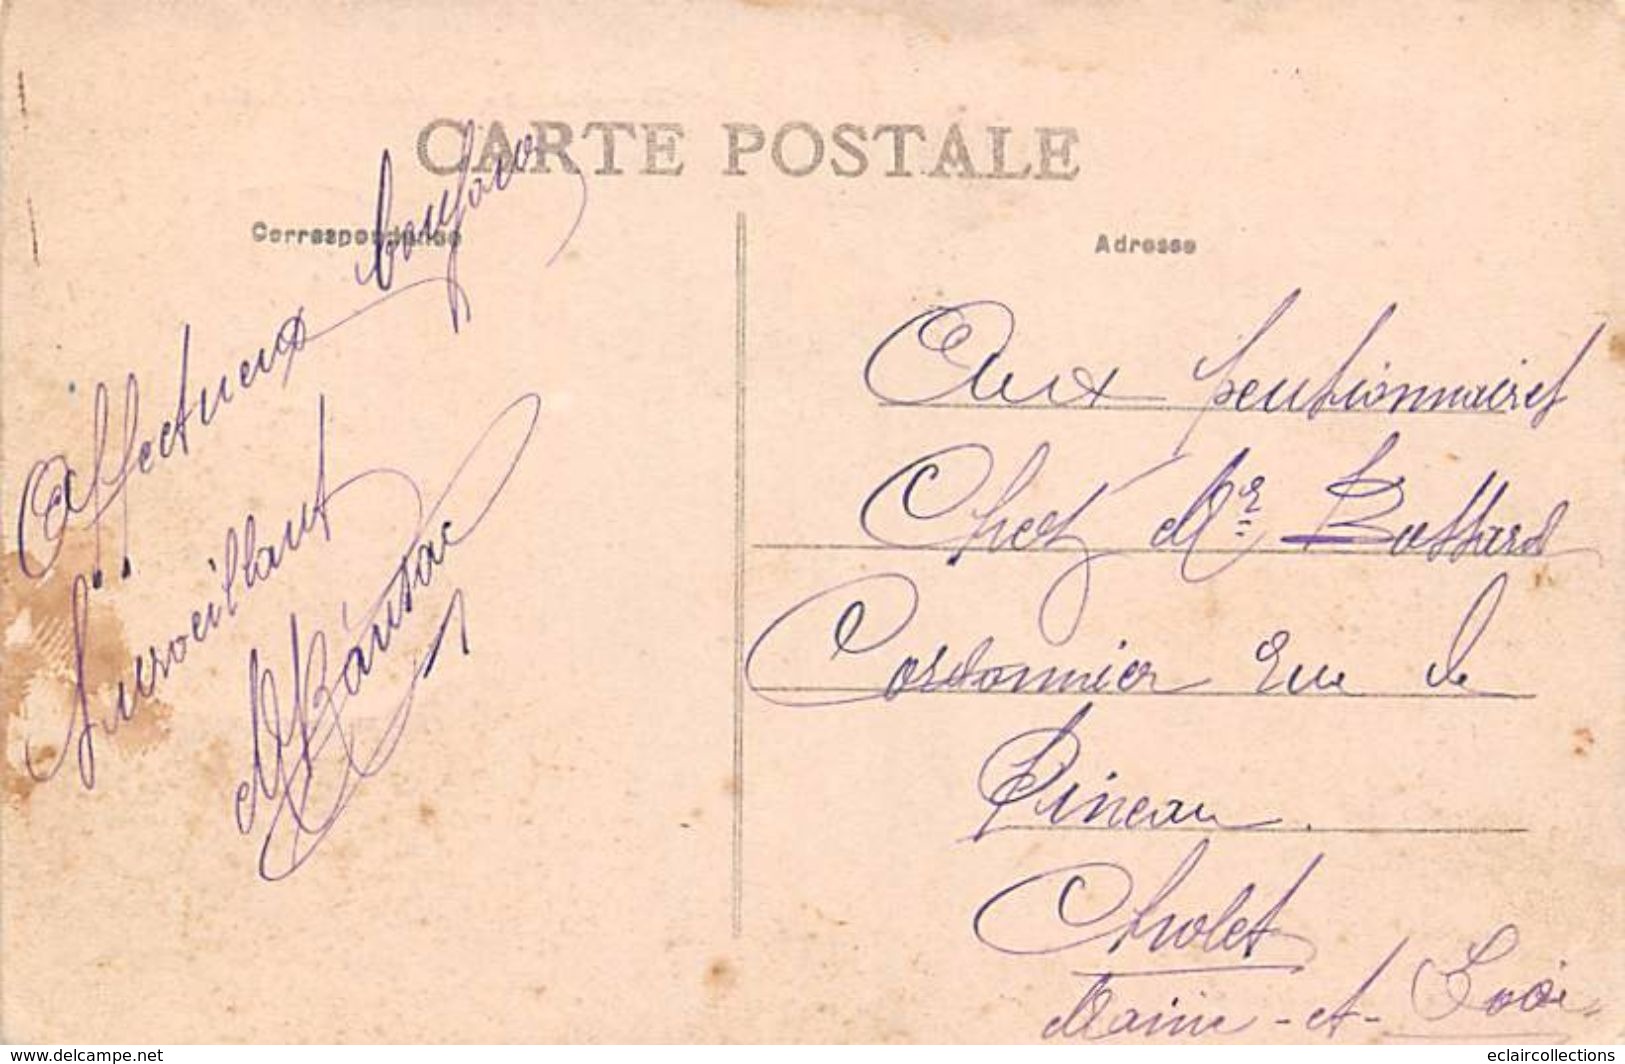 CARTE POSTALE
Correspondance
Adresse
Affectueux bonjour
Surveillant
Aux pensionnaires
Chez Mr. Bossard
Cordonnier rue de
Pineau.
Cholet
Maine-et-Loire
www.delcampe.net
eclaircollections